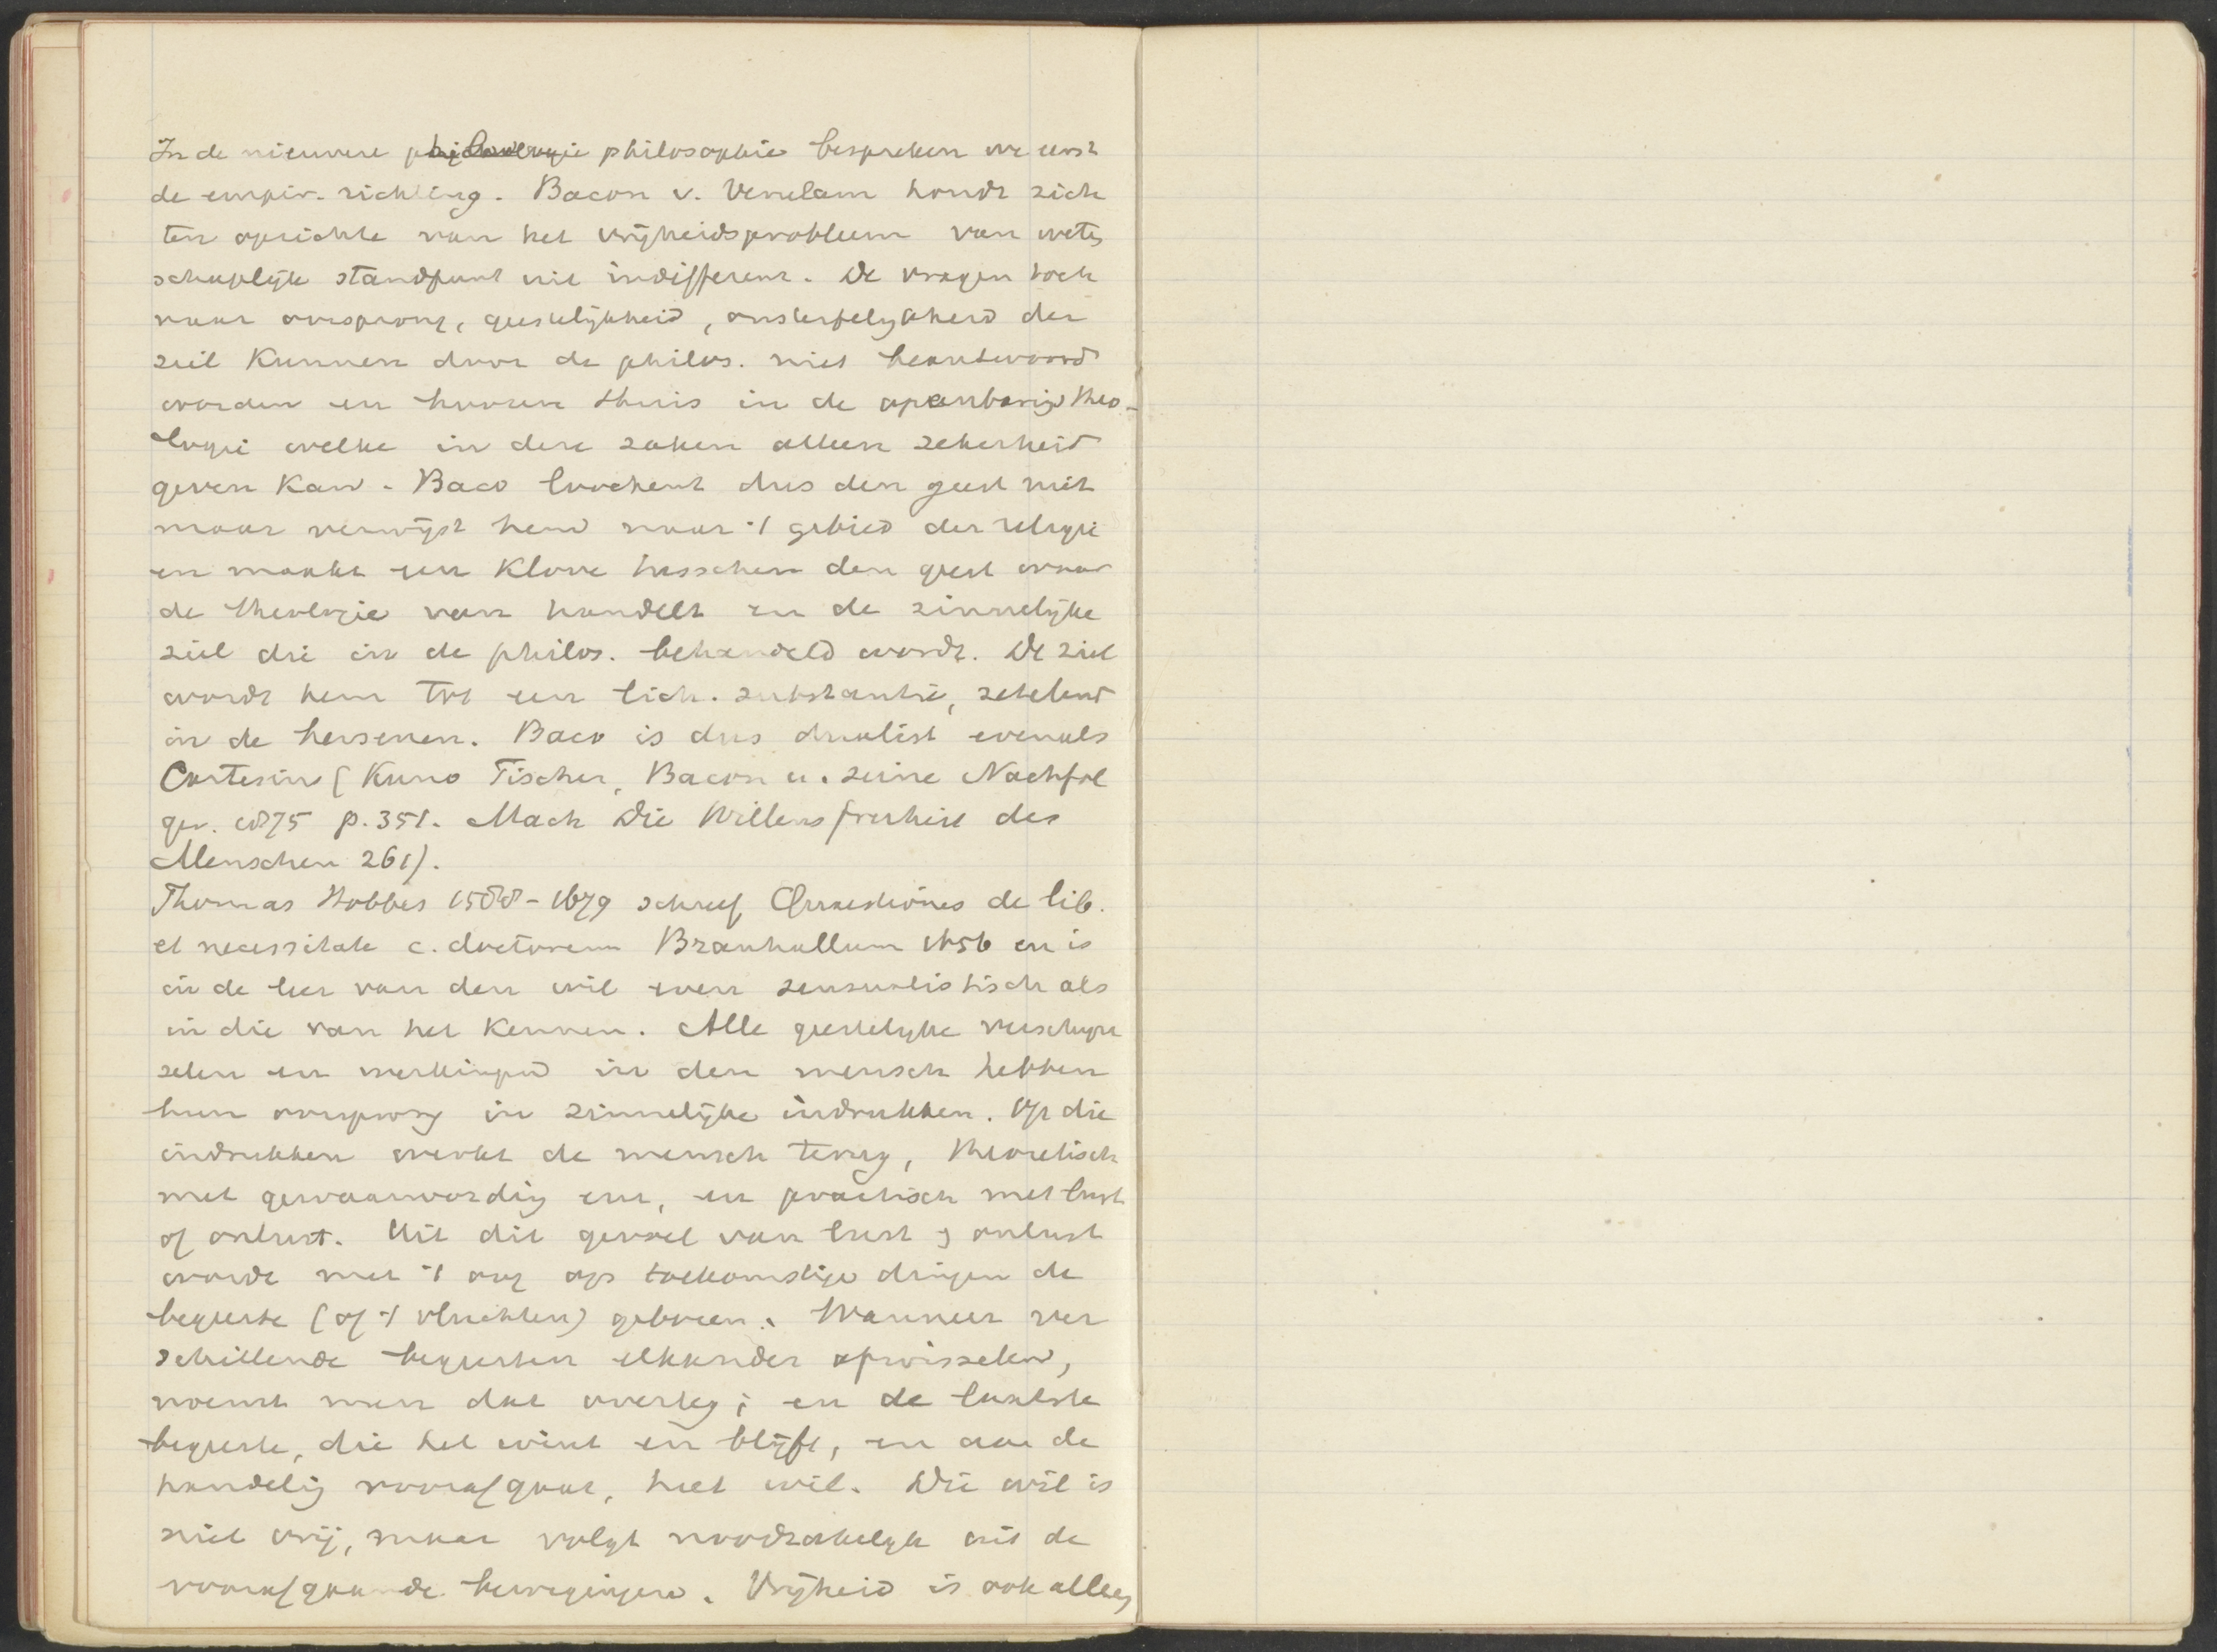 In de nieuwere philosophie bespreken we eerst
de empir. richting. Bacon v. Verulam houdt zich
ten opzichte van het vrijheidsprobleem van weten
schaplijk standpunt uit indifferent. De vragen toch
naar oorsprong, geestelijkheid, onsterfelykheid der
ziel kunnen door de philos. niet beantwoord
worden en hooren thuis in de openbarings theo-
logie welke in deze zaken alleen zekerheid
geven kan. Baco loochent dus den geest niet
maar verwijst hem naar 't gebied der religie
en maakt een klove tusschen den geest waar
de theologie van handelt en de zinnelijke
ziel die in de philos. behandeld wordt. De ziel
wordt hem tot een lich. substantie, zetelend
in de hersenen. Baco is dus dualist evenals
Cartesius (Kuno Fischer, Bacon u. seine Nachfol
ger. 1875 p. 351. Mach Die Willensfreiheit des
Menschen 261).
Thomas Hobbes 1588-1679 schreef Quaestiones de lib.
et necessitate c. doctorem Bramhallum 1656 en is
in de leer van den wil even sensualistisch als
in die van het kennen. Alle geestelijke verschijn
selen en werkingen in den mensch hebben
hun oorsprong in zinnelijke indrukken. Op die
indrukken werkt de mensch terug, theoretisch
met gewaarwording enz, en practisch met lust
of onlust. Uit dit gevoel van lust of onlust
wordt met 't oog op toekomstige dingen de
begeerte (of 't vluchten) geboren. Wanneer ver
schillende begeerten elkander afwisselen,
noemt men dat overleg; en de laatste
begeerte, die het wint en blijft, en aan de
handeling voorafgaat, heet wil. Die wil is
niet vrij, maar volgt noodzakelijk uit de
voorafgaande bewegingen. Vrijheid is ook alleen